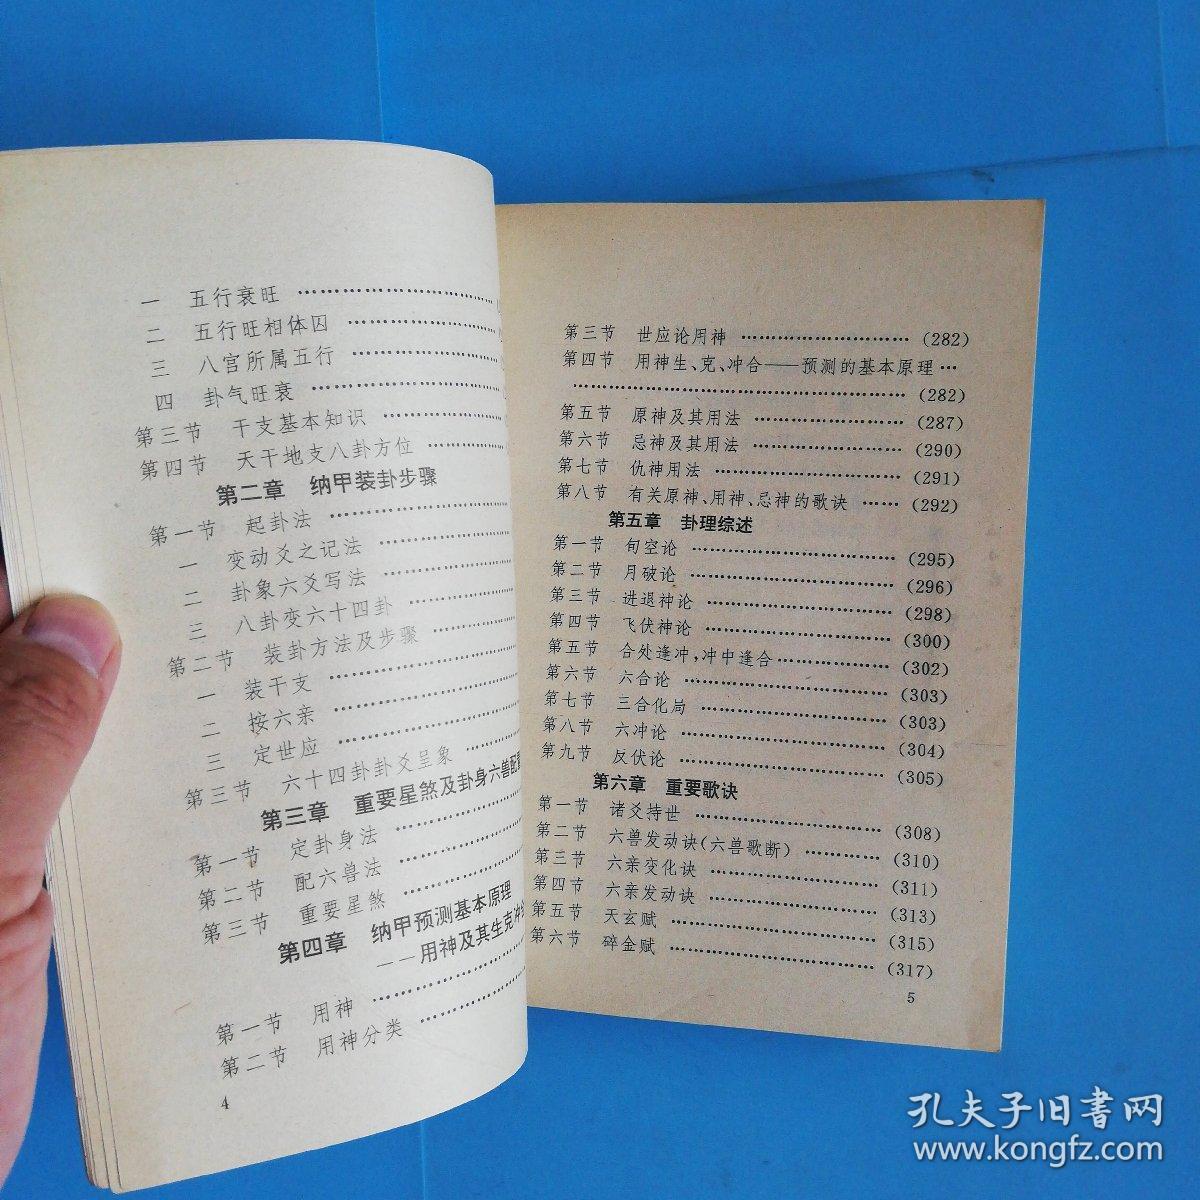 一 五行衰旺 ……………………
二 五行旺相体囚 ……………………
三 八宫所属五行 ……………………
四 卦气旺衰 ……………………
第三节 干支基本知识 ……………………
第四节 天干地支八卦方位 ……………………
第二章 纳甲装卦步骤
第一节 起卦法 ……………………
一 变动爻之记法 ……………………
二 卦象六爻写法 ……………………
三 八卦变六十四卦 ……………………
第二节 装卦方法及步骤 ……………………
一 装干支 ……………………
二 按六亲 ……………………
三 定世应 ……………………
第三节 六十四卦卦爻呈象 ……………………
第三章 重要星煞及卦身六兽配置
第一节 定卦身法 ……………………
第二节 配六兽法 ……………………
第三节 重要星煞 ……………………
第四章 纳甲预测基本原理
——用神及其生克冲
第一节 用神 ……………………
第二节 用神分类 ……………………
4
第三节 世应论用神 ……………………(282)
第四节 用神生、克、冲合——预测的基本原理…
……………………(282)
第五节 原神及其用法 ……………………(287)
第六节 忌神及其用法 ……………………(290)
第七节 仇神用法 ……………………(291)
第八节 有关原神、用神、忌神的歌诀 ……(292)
第五章 卦理综述
第一节 旬空论 ……………………(295)
第二节 月破论 ……………………(296)
第三节 进退神论 ……………………(298)
第四节 飞伏神论 ……………………(300)
第五节 合处逢冲,冲中逢合……………(302)
第六节 六合论 ……………………(303)
第七节 三合化局 ……………………(303)
第八节 六冲论 ……………………(304)
第九节 反伏论 ……………………(305)
第六章 重要歌诀
第一节 诸爻持世 ……………………(308)
第二节 六兽发动诀(六兽歌断) …………(310)
第三节 六亲变化诀 ……………………(311)
第四节 六亲发动诀 ……………………(313)
第五节 天玄赋 ……………………(315)
第六节 碎金赋 ……………………(317)
5
孔夫子旧书网
www.kongfz.com